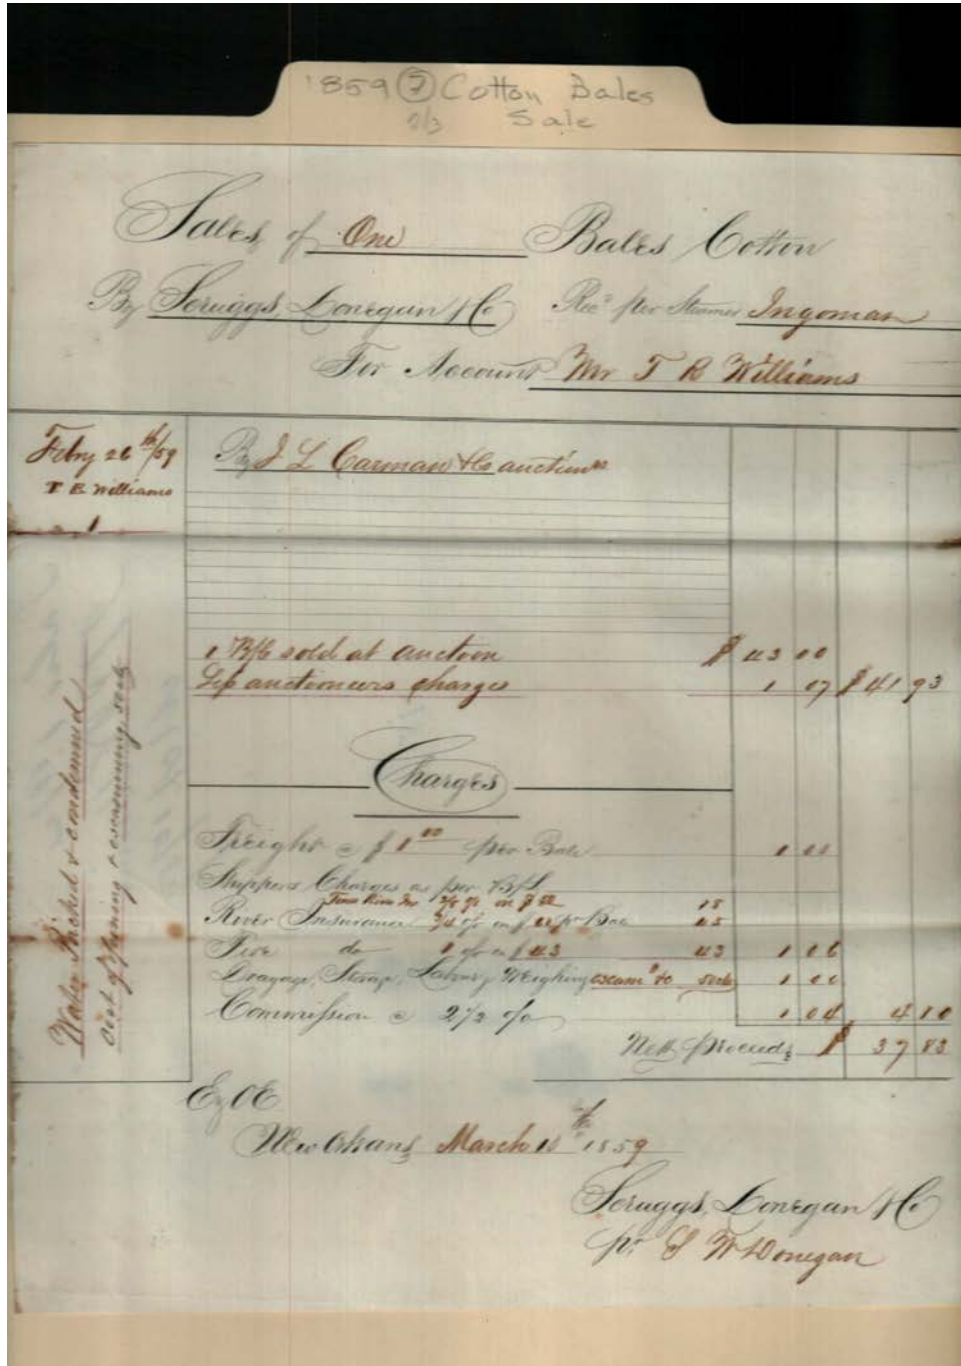 1859 ⑦ Cotton Bales
Sale
Sales of One Bales Cotton
By Scruggs, Donegan & Co Recd per Steamer Ingomar
For Account Mr T B Williams
Febry 26th/59
T B Williams
1
By J L Carman & Co auctionrs
1 B/C sold at auction $ 43 00
Less auctioneers charges 1 07 $ 41 93
Charges
Freight @ $ 1 00 per Bale 1 00
Shippers Charges as per B/L
Tenn River Ins on $
River Insurance 3/4 o/o on $ pr Bale
Fire do 1 o/o on $ 43 43 1 06
Drayage, Storage, Labor & Weighing 1 00
Commission @ 2 1/2 o/o 1 04 4 10
Nett proceeds $ 37 83
Water Packed & condemned
cost of opening &
E & OE
New Orleans March 10th 1859
Scruggs, Donegan & Co
pr S W Donegan